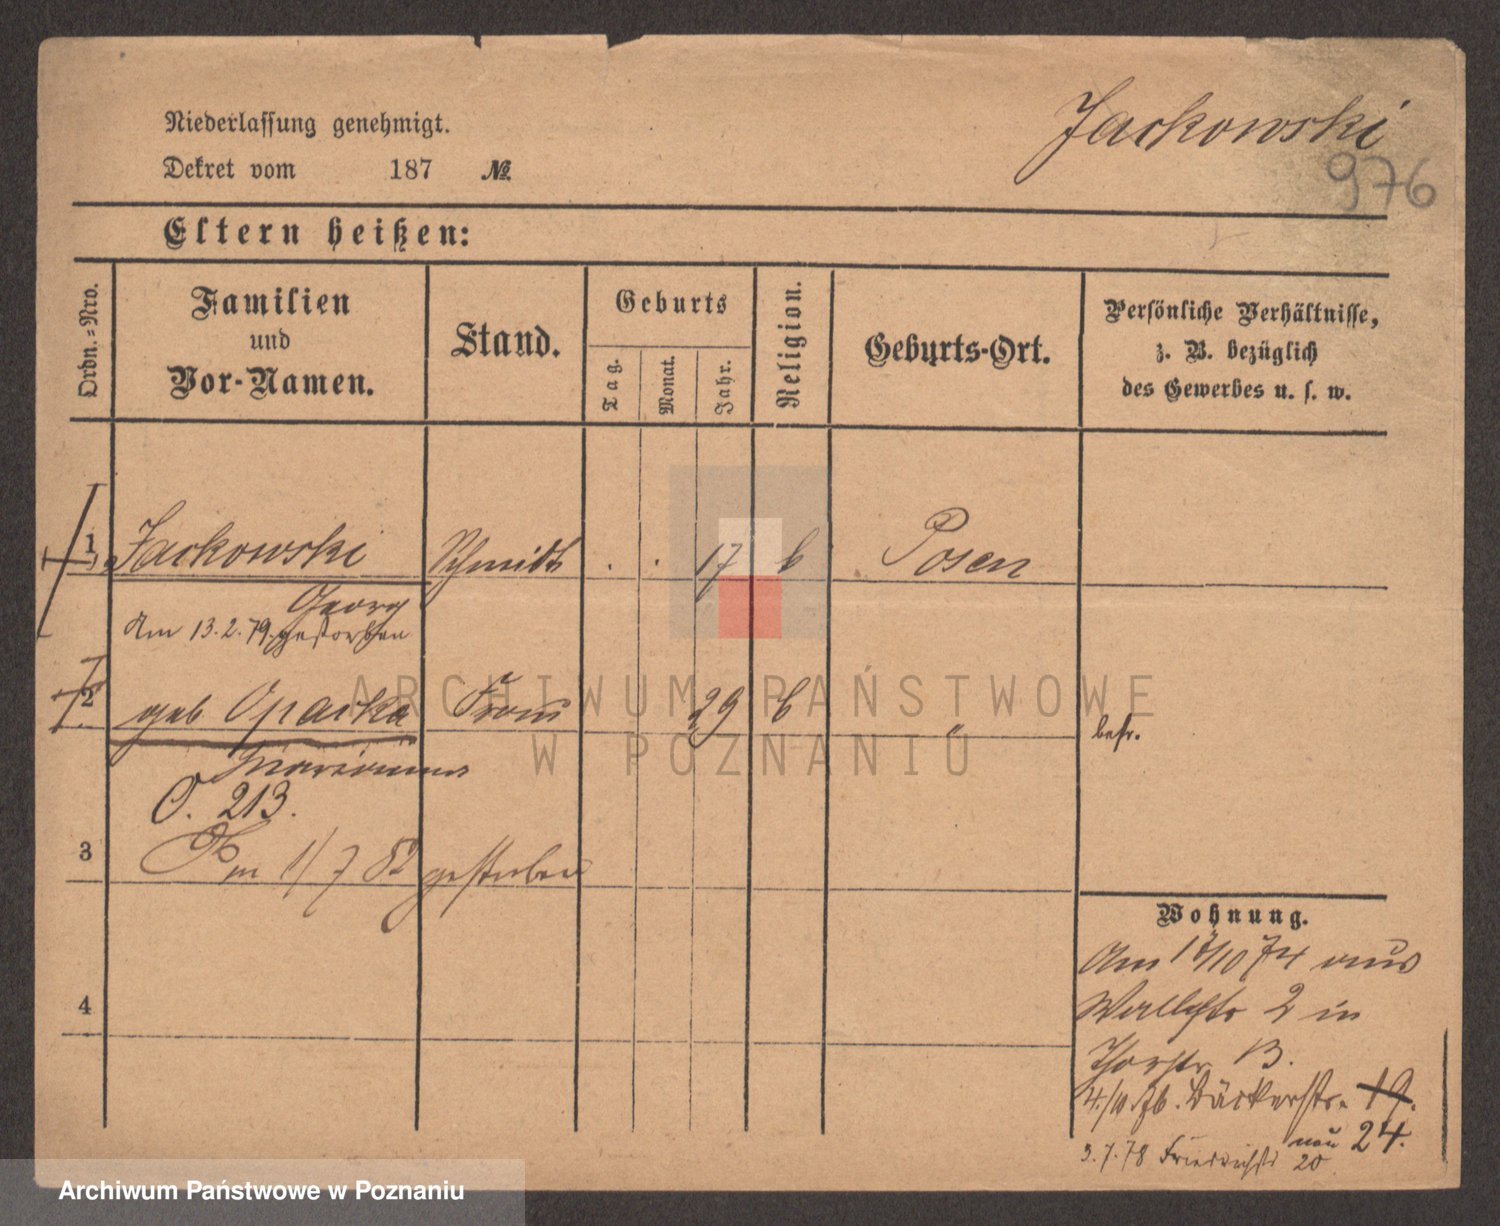 Niederlassung genehmigt.
Dekret vom 187 №
Jackowski
976
Eltern heißen:
Ordn.-Nro.
Familien
und
Vor-Namen.
Stand.
Geburts
Tag.
Monat.
Jahr.
Religion.
Geburts-Ort.
Persönliche Verhältnisse,
z. B. bezüglich
des Gewerbes u. s. w.
1 Jackowski Schmidt . . 17 k Posen
Georg
Am 13.2.79. gestorben
2 geb Opacka Frau 29 k " befr.
Marianna
O. 213.
3 Am 1/7 82 gestorben
4
Wohnung.
Am 17/10 74 aus
Wallstr 2 in
Thorstr 13.
4./10. 76. Bäckerstr. 19.
neu 24.
3.7.78 Friedrichstr 20
ARCHIWUM PAŃSTWOWE
W POZNANIU
Archiwum Państwowe w Poznaniu